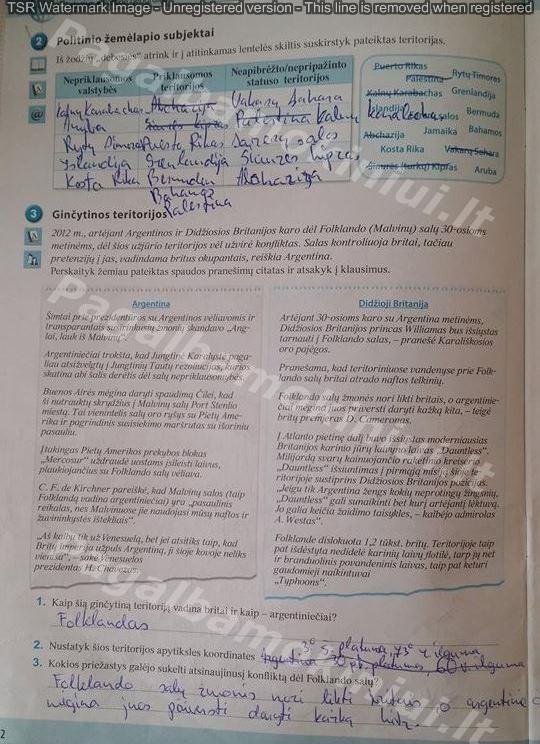 TSR Watermark Image - Unregistered version - This line is removed when registered
2 Politinio žemėlapio subjektai
Iš žodžių „debesies“ atrink ir į atitinkamas lentelės skiltis suskirstyk pateiktas teritorijas.
Nepriklausomos valstybės
Priklausomos teritorijos
Neapibrėžto/nepripažinto statuso teritorijos
Abchazija
Vakarų Sahara
Aruba
Šiaurės Kipras
Palestina
Puerto Rikas
Islandija
Grenlandija
Šiaurės Kipras
Kosta Rika
Bermudai
Abchazija
Bahamos
Palestina
Puerto Rikas
Palestina
Rytų Timoras
Kalnų Karabachas
Grenlandija
Islandija
Bermuda
Abchazija
Jamaika
Bahamos
Kosta Rika
Vakarų Sahara
Šiaurės (turkų) Kipras
Aruba
3 Ginčytinos teritorijos
2012 m., artėjant Argentinos ir Didžiosios Britanijos karo dėl Folklando (Malvinų) salų 30-osioms
metinėms, dėl šios užjūrio teritorijos vėl užvirė konfliktas. Salas kontroliuoja britai, tačiau
pretenzijų į jas, vadindama britus okupantais, reiškia Argentina.
Perskaityk žemiau pateiktas spaudos pranešimų citatas ir atsakyk į klausimus.
Argentina
Šimtai prie prezidentūros su Argentinos vėliavomis ir
transparantais susirinkusių žmonių skandavo „Ang-
lai, lauk iš Malvinų“.
Argentiniečiai trokšta, kad Jungtinė Karalystė paga-
liau atsižvelgtų į Jungtinių Tautų rezoliucijas, kurios
skatina abi šalis derėtis dėl salų nepriklausomybės.
Buenos Airės mėgina daryti spaudimą Čilei, kad
ši nutrauktų skrydžius į Malvinų salų Port Stenlio
miestą. Tai vienintelis salų oro ryšys su Pietų Ame-
rika ir pagrindinis susisiekimo maršrutas su išoriniu
pasauliu.
Įtakingas Pietų Amerikos prekybos blokas
„Mercosur“ uždraudė uostams įsileisti laivus,
plaukiojančius su Folklando salų vėliava.
C. F. de Kirchner pareiškė, kad Malvinų salos (taip
Folklandą vadina argentiniečiai) yra „pasaulinis
reikalas, nes Malvinuose jie naudojasi mūsų naftos ir
žuvininkystės ištekliais“.
„Aš kalbu tik už Venesuelą, bet jei atsitiks taip, kad
Britų imperija užpuls Argentiną, ji šioje kovoje neliks
vieniša“, – sakė Venesuelos
prezidentas H. Chavezas.
Didžioji Britanija
Artėjant 30-osioms karo su Argentina metinėms,
Didžiosios Britanijos princas Williamas bus išsiųstas
tarnauti į Folklando salas, – pranešė Karališkosios
oro pajėgos.
Pranešama, kad teritoriniuose vandenyse prie Folk-
lando salų britai atrado naftos telkinių.
Folklando salų žmonės nori likti britais, o argentinie-
čiai mėgina juos priversti daryti kažką kita, – teigė
britų premjeras D. Cameronas.
Į Atlanto pietinę dalį bus išsiųstas moderniausias
Britanijos karinio jūrų laivyno laivas „Dauntless“.
Milijardą svarų kainuojančio raketinio kreiserio
„Dauntless“ išsiuntimas į pirmąją misiją šioje te-
ritorijoje sustiprins Didžiosios Britanijos pozicijas.
„Jeigu tik Argentina žengs kokių neprotingų žingsnių,
„Dauntless“ gali sunaikinti bet kurį artėjantį lėktuvą.
Jo galia keičia žaidimo taisykles, – kalbėjo admirolas
A. Westas“.
Folklande dislokuota 1,2 tūkst. britų. Teritorijoje taip
pat išdėstyta nedidelė karinių laivų flotilė, tarp jų net
ir branduolinis povandeninis laivas, taip pat keturi
gaudomieji naikintuvai
„Typhoons“.
1. Kaip šią ginčytiną teritoriją vadina britai ir kaip – argentiniečiai?
Folklandas
2. Nustatyk šios teritorijos apytiksles koordinates
3. Kokios priežastys galėjo sukelti atsinaujinusį konfliktą dėl Folklando salų?
Folklando salų žmonės nori likti britais o argentiniečiai
mėgina juos priversti daryti kažką kitą.
2
Pagalbamokiniui.lt
Pagalbamokiniui.lt
Pagalbamokiniui.lt